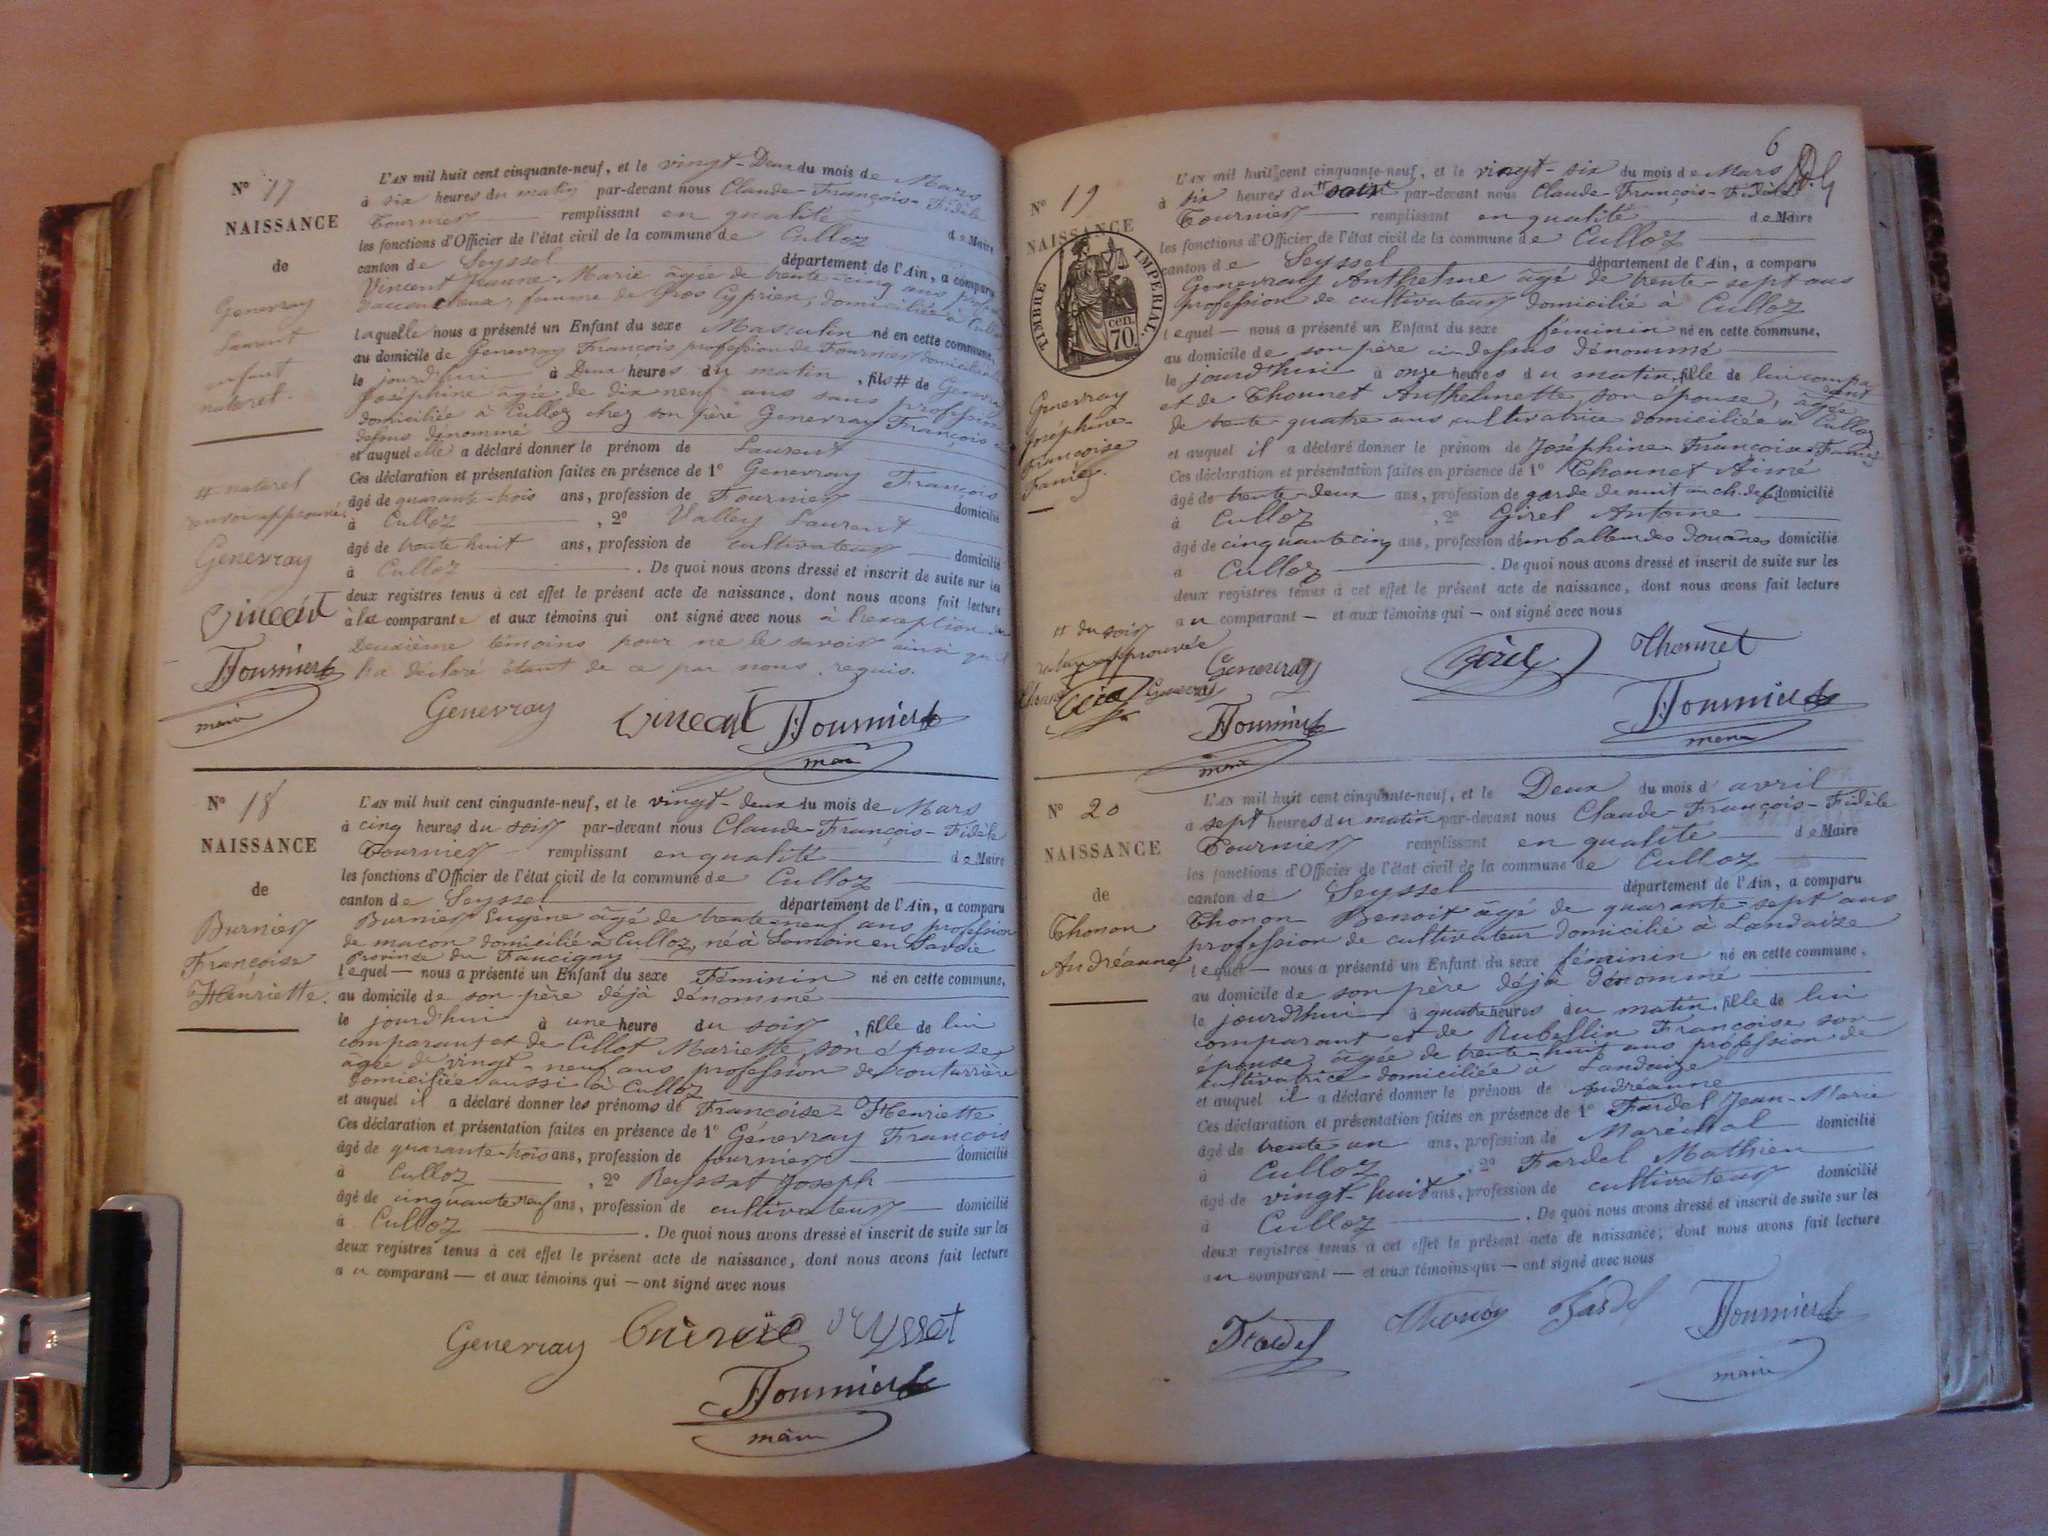 N° 17
NAISSANCE
de
Genevray
Laurent
enfant
naturel.
# naturel
renvoi approuvé
Genevray
Vincent
Fournier
maire
L'AN mil huit cent cinquante-neuf, et le vingt-Deux du mois de Mars
à six heures du matin par-devant nous Claude-François-Fidèle
Fournier remplissant en qualité de Maire
les fonctions d'Officier de l'état civil de la commune de Culloz
canton de Seyssel département de l'Ain, a comparu
Vincent Jeanne-Marie âgée de trente-cinq ans
femme de Gros Cyprien, domiciliée à Culloz
laquelle nous a présenté un Enfant du sexe Masculin né en cette commune,
au domicile de Genevray François profession de Fournier domicilié
le jourd'hui à Deux heures du matin, fils # de Genevray
Joséphine âgée de dix neuf ans sans profession
domiciliée à Culloz chez son père Genevray François
dessus dénommé
et auquel elle a déclaré donner le prénom de Laurent
Ces déclaration et présentation faites en présence de 1° Genevray François
âgé de quarante-trois ans, profession de Fournier domicilié
à Culloz, 2° Valley Laurent
âgé de trente huit ans, profession de cultivateur domicilié
à Culloz. De quoi nous avons dressé et inscrit de suite sur les
deux registres tenus à cet effet le présent acte de naissance, dont nous avons fait lecture
à la comparante et aux témoins qui ont signé avec nous à l'exception du
Deuxième témoins pour ne le savoir ainsi qu'il
l'a déclaré étant de ce par nous requis.
Genevray Vincent Fournier
maire
N° 18
NAISSANCE
de
Burnier
Françoise
Henriette.
L'AN mil huit cent cinquante-neuf, et le vingt-deux du mois de Mars
à cinq heures du soir par-devant nous Claude-François-Fidèle
Fournier remplissant en qualité de Maire
les fonctions d'Officier de l'état civil de la commune de Culloz
canton de Seyssel département de l'Ain, a comparu
Burnier Eugène âgé de trente neuf ans, profession
de maçon domicilié à Culloz, né à Samoin en Savoie
Province du Faucigny
lequel — nous a présenté un Enfant du sexe Féminin né en cette commune,
au domicile de son père déjà dénommé
le jourd'hui à une heure du soir, fille de lui
comparant et de Cillot Mariette, son épouse,
âgée de vingt-neuf ans profession de couturrière
domiciliée aussi à Culloz
et auquel il a déclaré donner les prénoms de Françoise-Henriette
Ces déclaration et présentation faites en présence de 1° Génevray François
âgé de quarante-trois ans, profession de fournier domicilié
à Culloz, 2° Reyssat Joseph
âgé de cinquante neuf ans, profession de cultivateur domicilié
à Culloz. De quoi nous avons dressé et inscrit de suite sur les
deux registres tenus à cet effet le présent acte de naissance, dont nous avons fait lecture
au comparant — et aux témoins qui — ont signé avec nous
Genevray
Fournier
maire
6
N° 19
NAISSANCE
TIMBRE IMPERIAL.
70 cen.
Genevray
Joséphine-
Françoise
Fanny.
# du soir
rature approuvée
Genevray
Fournier
maire
L'AN mil huit cent cinquante-neuf, et le vingt-six du mois de Mars
à six heures du # soir par-devant nous Claude-François-Fidèle
Fournier remplissant en qualité de Maire
les fonctions d'Officier de l'état civil de la commune de Culloz
canton de Seyssel département de l'Ain, a comparu
Genevray Anthelme âgé de trente-sept ans
profession de cultivateur domicilié à Culloz
lequel — nous a présenté un Enfant du sexe féminin né en cette commune,
au domicile de son père ci-dessus dénommé
le jourd'hui à onze heures du matin, fille de lui comparant
et de Thonnet Anthelmette, son épouse, âgée
de trente-quatre ans cultivatrice domiciliée à Culloz
et auquel il a déclaré donner le prénom de Joséphine-Françoise-Fanny
Ces déclaration et présentation faites en présence de 1° Thonnet Aimé
âgé de trente-deux ans, profession de garde de nuit au ch. de f. domicilié
à Culloz, 2° Girel Antoine
âgé de cinquante cinq ans, profession d'emballeur des douanes domicilié
à Culloz. De quoi nous avons dressé et inscrit de suite sur les
deux registres tenus à cet effet le présent acte de naissance, dont nous avons fait lecture
au comparant — et aux témoins qui — ont signé avec nous
Genevray Girel Thonnet
Fournier
maire
N° 20
NAISSANCE
de
Thonon
Andréanne
L'AN mil huit cent cinquante-neuf, et le Deux du mois d'avril
à sept heures du matin par-devant nous Claude-François-Fidèle
Fournier remplissant en qualité de Maire
les fonctions d'Officier de l'état civil de la commune de Culloz
canton de Seyssel département de l'Ain, a comparu
Thonon Benoit âgé de quarante-sept ans
profession de cultivateur domicilié à Landaize
lequel — nous a présenté un Enfant du sexe féminin né en cette commune,
au domicile de son père déjà dénommé
le jourd'hui à quatre heures du matin, fille de lui
comparant et de Rubellin Françoise son
épouse, âgée de trente-huit ans profession de
cultivatrice domiciliée à Landaize
et auquel il a déclaré donner le prénom de Andréanne
Ces déclaration et présentation faites en présence de 1° Fardel Jean-Marie
âgé de trente un ans, profession de Marechal domicilié
à Culloz, 2° Fardel Mathieu
âgé de vingt-huit ans, profession de cultivateur domicilié
à Culloz. De quoi nous avons dressé et inscrit de suite sur les
deux registres tenus à cet effet le présent acte de naissance, dont nous avons fait lecture
au comparant — et aux témoins qui — ont signé avec nous
Fardel Thonon Fardel Fournier
maire